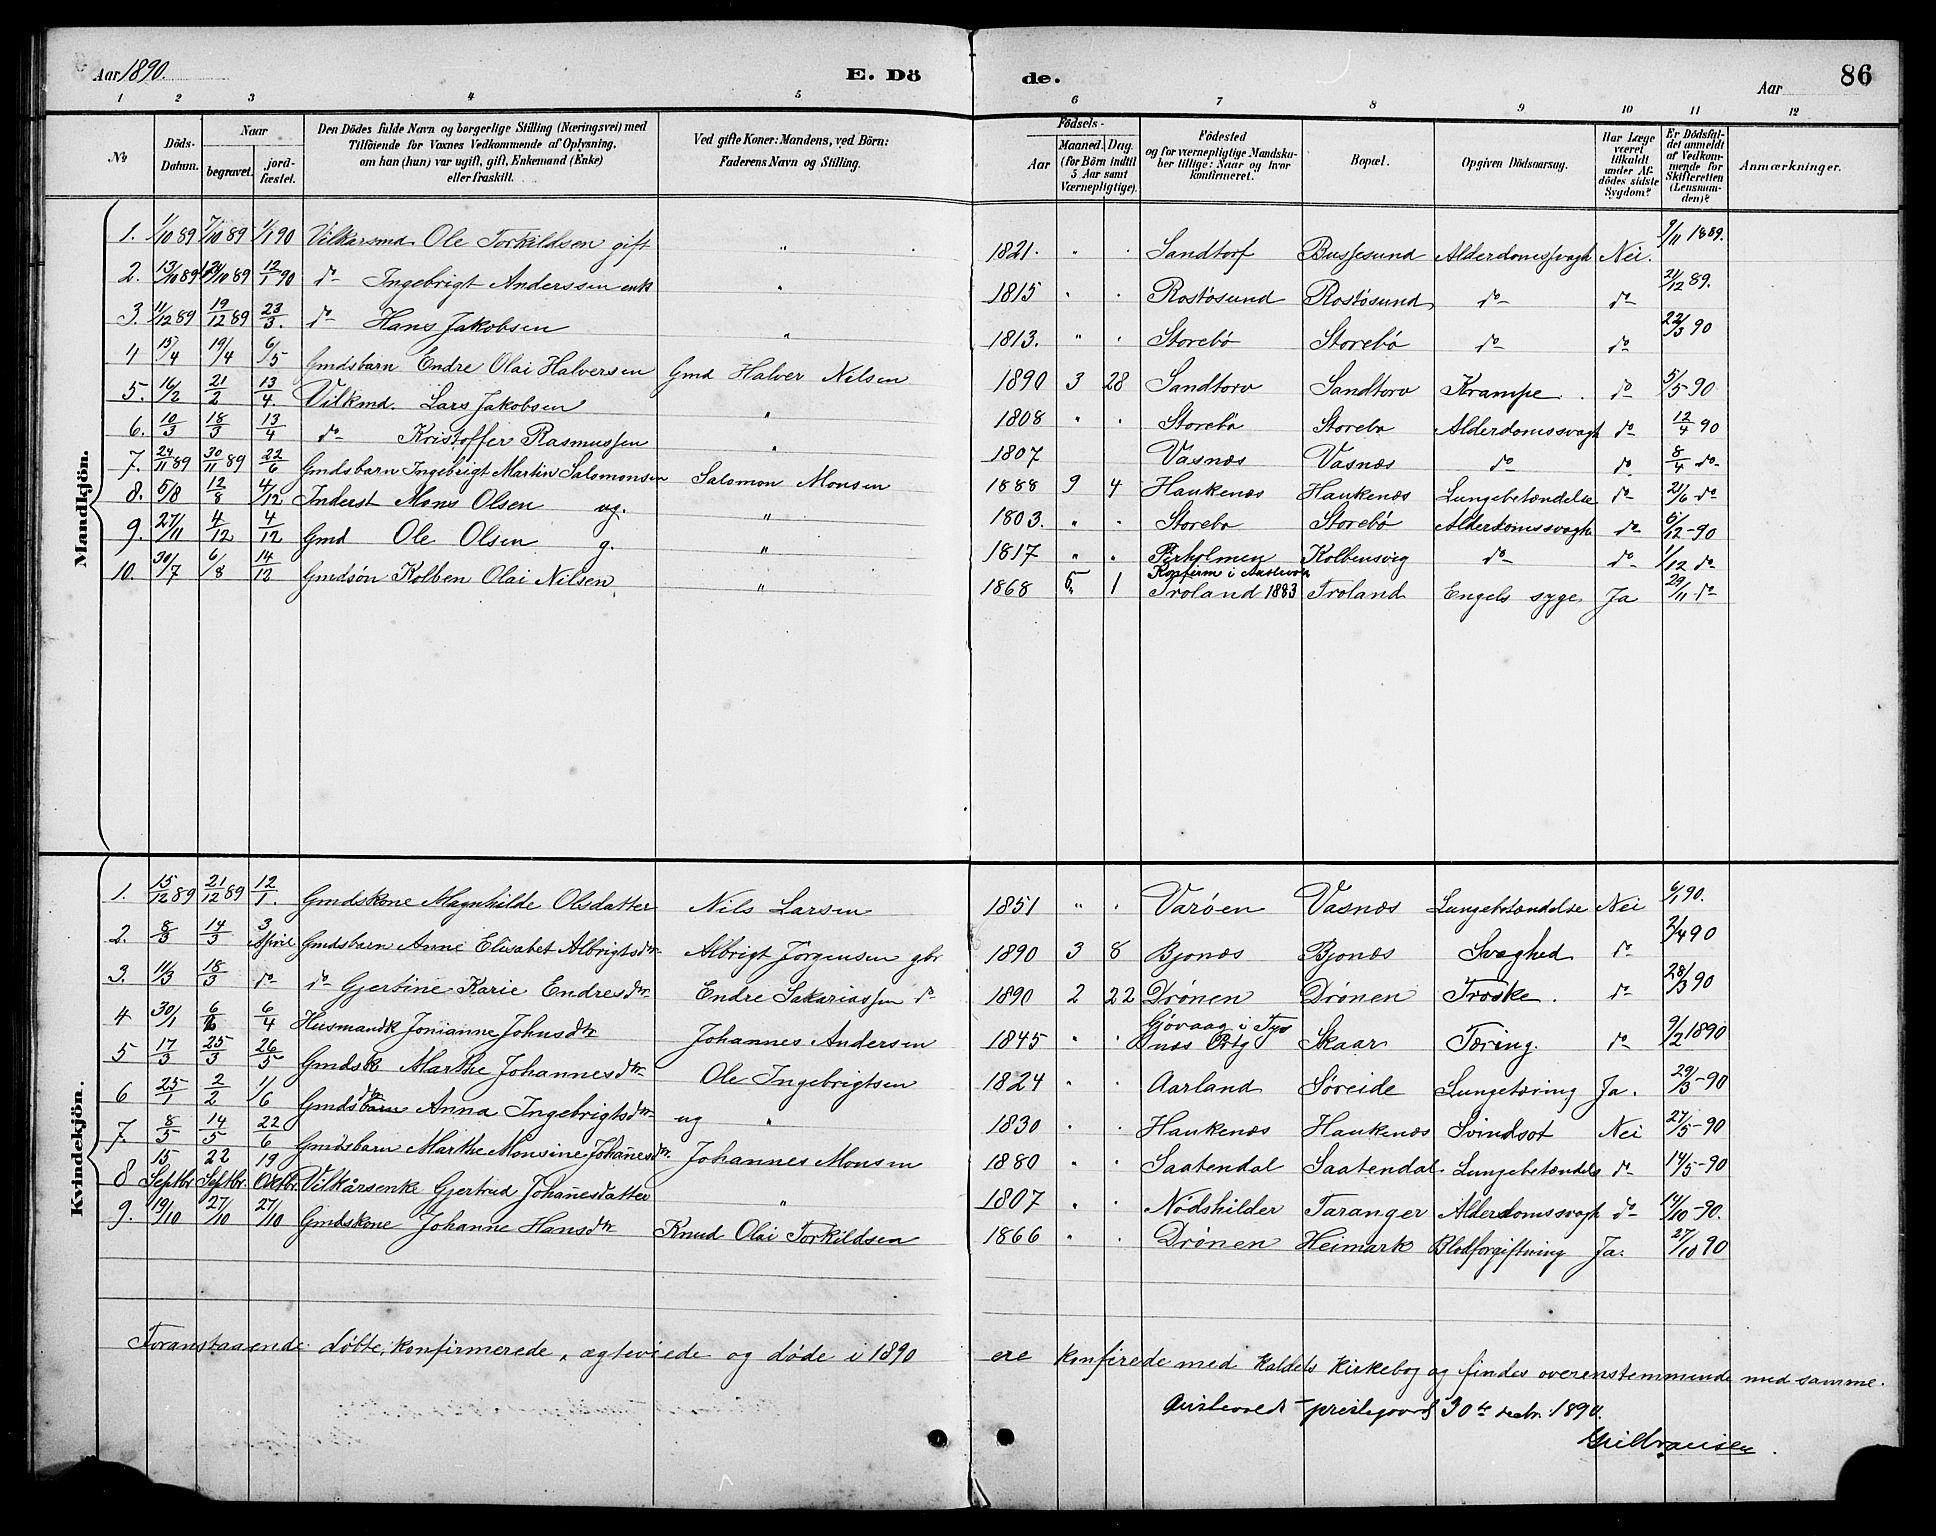 Aar 1890. E. Dö de. Aar 86
1 2 3 4 5 6 7 8 9 10 11 12
No
Döds-Datum.
Naar begravet. jordfæstet.
Den Dödes fulde Navn og borgerlige Stilling (Næringsvei) med Tilföiende for Voxnes Vedkommende af Oplysning, om han (hun) var ugift, gift, Enkemand (Enke) eller fraskilt.
Ved gifte Koner: Mandens, ved Börn: Faderens Navn og Stilling.
Födsels- Aar Maaned. Dag. (for Börn indtil 5 Aar samt Værnepligtige).
Födested og for værnepligtige Mandskaber tillige: Naar og hvor konfirmeret.
Bopæl.
Opgiven Dödsaarsag.
Har Læge været tilkaldt under Afdödes sidste Sygdom?
Er Dödsfaldet anmeldt af Vedkommende for Skifteretten (Lensmanden)?
Anmærkninger.
Mandkjön.
1. 1/10 89 7/10 89 1/1 90 Vilkarsmd. Ole Torkildsen gift " 1821. " . Sandtorf Bussesund Alderdomssvagh Nei. 9/11 1889.
2. 13/10 89 /10 89 12/1 90 do Ingebrigt Anderssen enk " 1815 " . Rostøsund Rostøsund do do 21/12 89.
3. 11/12 89 19/12 89 23/3. do Hans Jakobsen " 1813. " . Storebø Storebø do do 22/3 90
4 15/4 19/4 6/5 Gmdsbarn Endre Olai Halversen Gmd Halver Nilsen 1890 3 28 Sandtorv Sandtorv Krampe. do 5/5-90
5. 16/2 21/2 13/4. Vilkmd. Lars Jakobsen " 1808 " . Storebø Storebø Alderdomssvagh do 12/4 90
6. 10/3 18/3 13/4 do Kristoffer Rasmussen " 1807 Vasnæs Vasnæs do do 8/4 do
7. 24/11 89 30/11 89 22/6 Gmdsbarn Ingebrigt Martin Salomonsen Salomon Monsen 1888 9 4 Haukenæs Haukenæs Lungebetændelse do 21/6 do
8. 5/8 12/8 4/12 Inderst Mons Olsen ug. " 1803. " . Storebø Storebø Alderdomssvagh do 6/12-90
9. 27/11 4/12 4/12 Gmd Ole Olsen g. " 1817 " " Perholmen Kolbensvig do do 1/12 do
10. 30/7 6/8 14/12 Gmdsøn Kolben Olai Nilsen. " 1868 5. 1 Konfirm i Austevoll Troland 1883 Troland Engels syge Ja 29/11 do
Kvindekjön.
1. 15/12 89 21/12 89 12/1. Gmdskone Magnhilde Olsdatter Nils Larsen 1851 " . Varøen Vasnæs Lungebetændelse Nei 6/1 90.
2. 8/3 14/3 3 April Gmdsbarn Anne Elisabet Albrigtsdtr Albrigt Jørgensen gbr 1890 3 8 Bjonæs Bjonæs Svaghed do 3/4 90
3. 11/3 18/3 do do Gjertine Karie Endresdtr Endre Sakariassen do 1890 2 22 Drönen Drönen Troske. do 28/3 90
4 30/1 6/4 Husmandk Jonianne Johnsdtr Johannes Andersen 1845 " . Gjøvaag i Tysnæs Skaar Tæring. do 9/2 1890
5 17/3 25/3 26/5 Gmdsk Marthe Johannesdtr Ole Ingebrigtsen 1824 " . Aarland Søreide Lungetæring Ja. 29/3-90
6 25/1 2/2 1/6 Gmdsdtr Anna Ingebrigtsdtr ug " 1830 . . Haukenæs Haukenæs Svindsot Nei 27/5-90
7. 8/5 14/5 22/6 Gmdsbarn Marthe Monsine Johanesdtr. Johannes Monsen 1880 " . Saatendal Saatendal Lungebetændels do 14/5-90
8 15 Septbr. 22 Septbr. 19 Octbr. Vilkårsenke Gjertrud Johanesdatter " 1807 " . Nødshilder Taranger Alderdomssvagh do 14/10-90.
9. 19/10 27/10 27/10 Gmdskone Johanne Hansdtr Knud Olai Torkildsen 1866 " . Drönen Heimark Blodforgiftning Ja. 27/10 90
Foranstaaende døbte, konfirmerede, ægteviede og døde i 1890 ere konfirede med Kaldets Kirkebog og findes overenstemmende med samme.
Austevolds prestegaard 30te decbr. 1890.